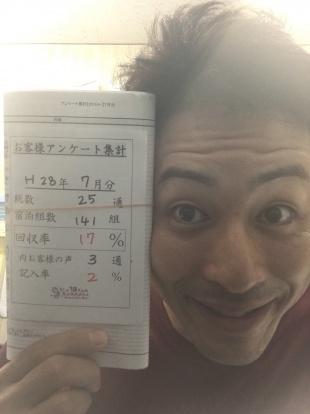 お客様アンケート集計
H28年 7月分
総数 25 通
宿泊組数 141 組
回収率 17 %
内お客様の声 3 通
記入率 2 %